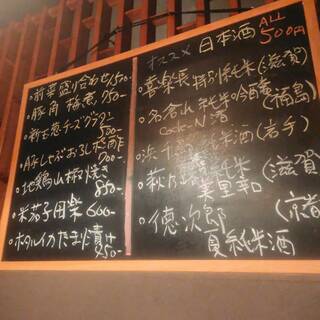 前菜盛り合わせ 1,500-
豚角 梅煮 750-
新生姜チーズグラタン
500-
豚しゃぶおろしポン酢
700-
地鶏山椒焼き
850-
米茄子田楽 600-
ホタルイカたまり漬け
450-
オススメ 日本酒 ALL
500円
喜楽長 特別純米(滋賀)
名倉山 純米吟醸
(福島)
浜千鳥 純米酒(岩手)
萩乃露 純米 (滋賀)
里山
徳次郎 (京都)
夏純米酒